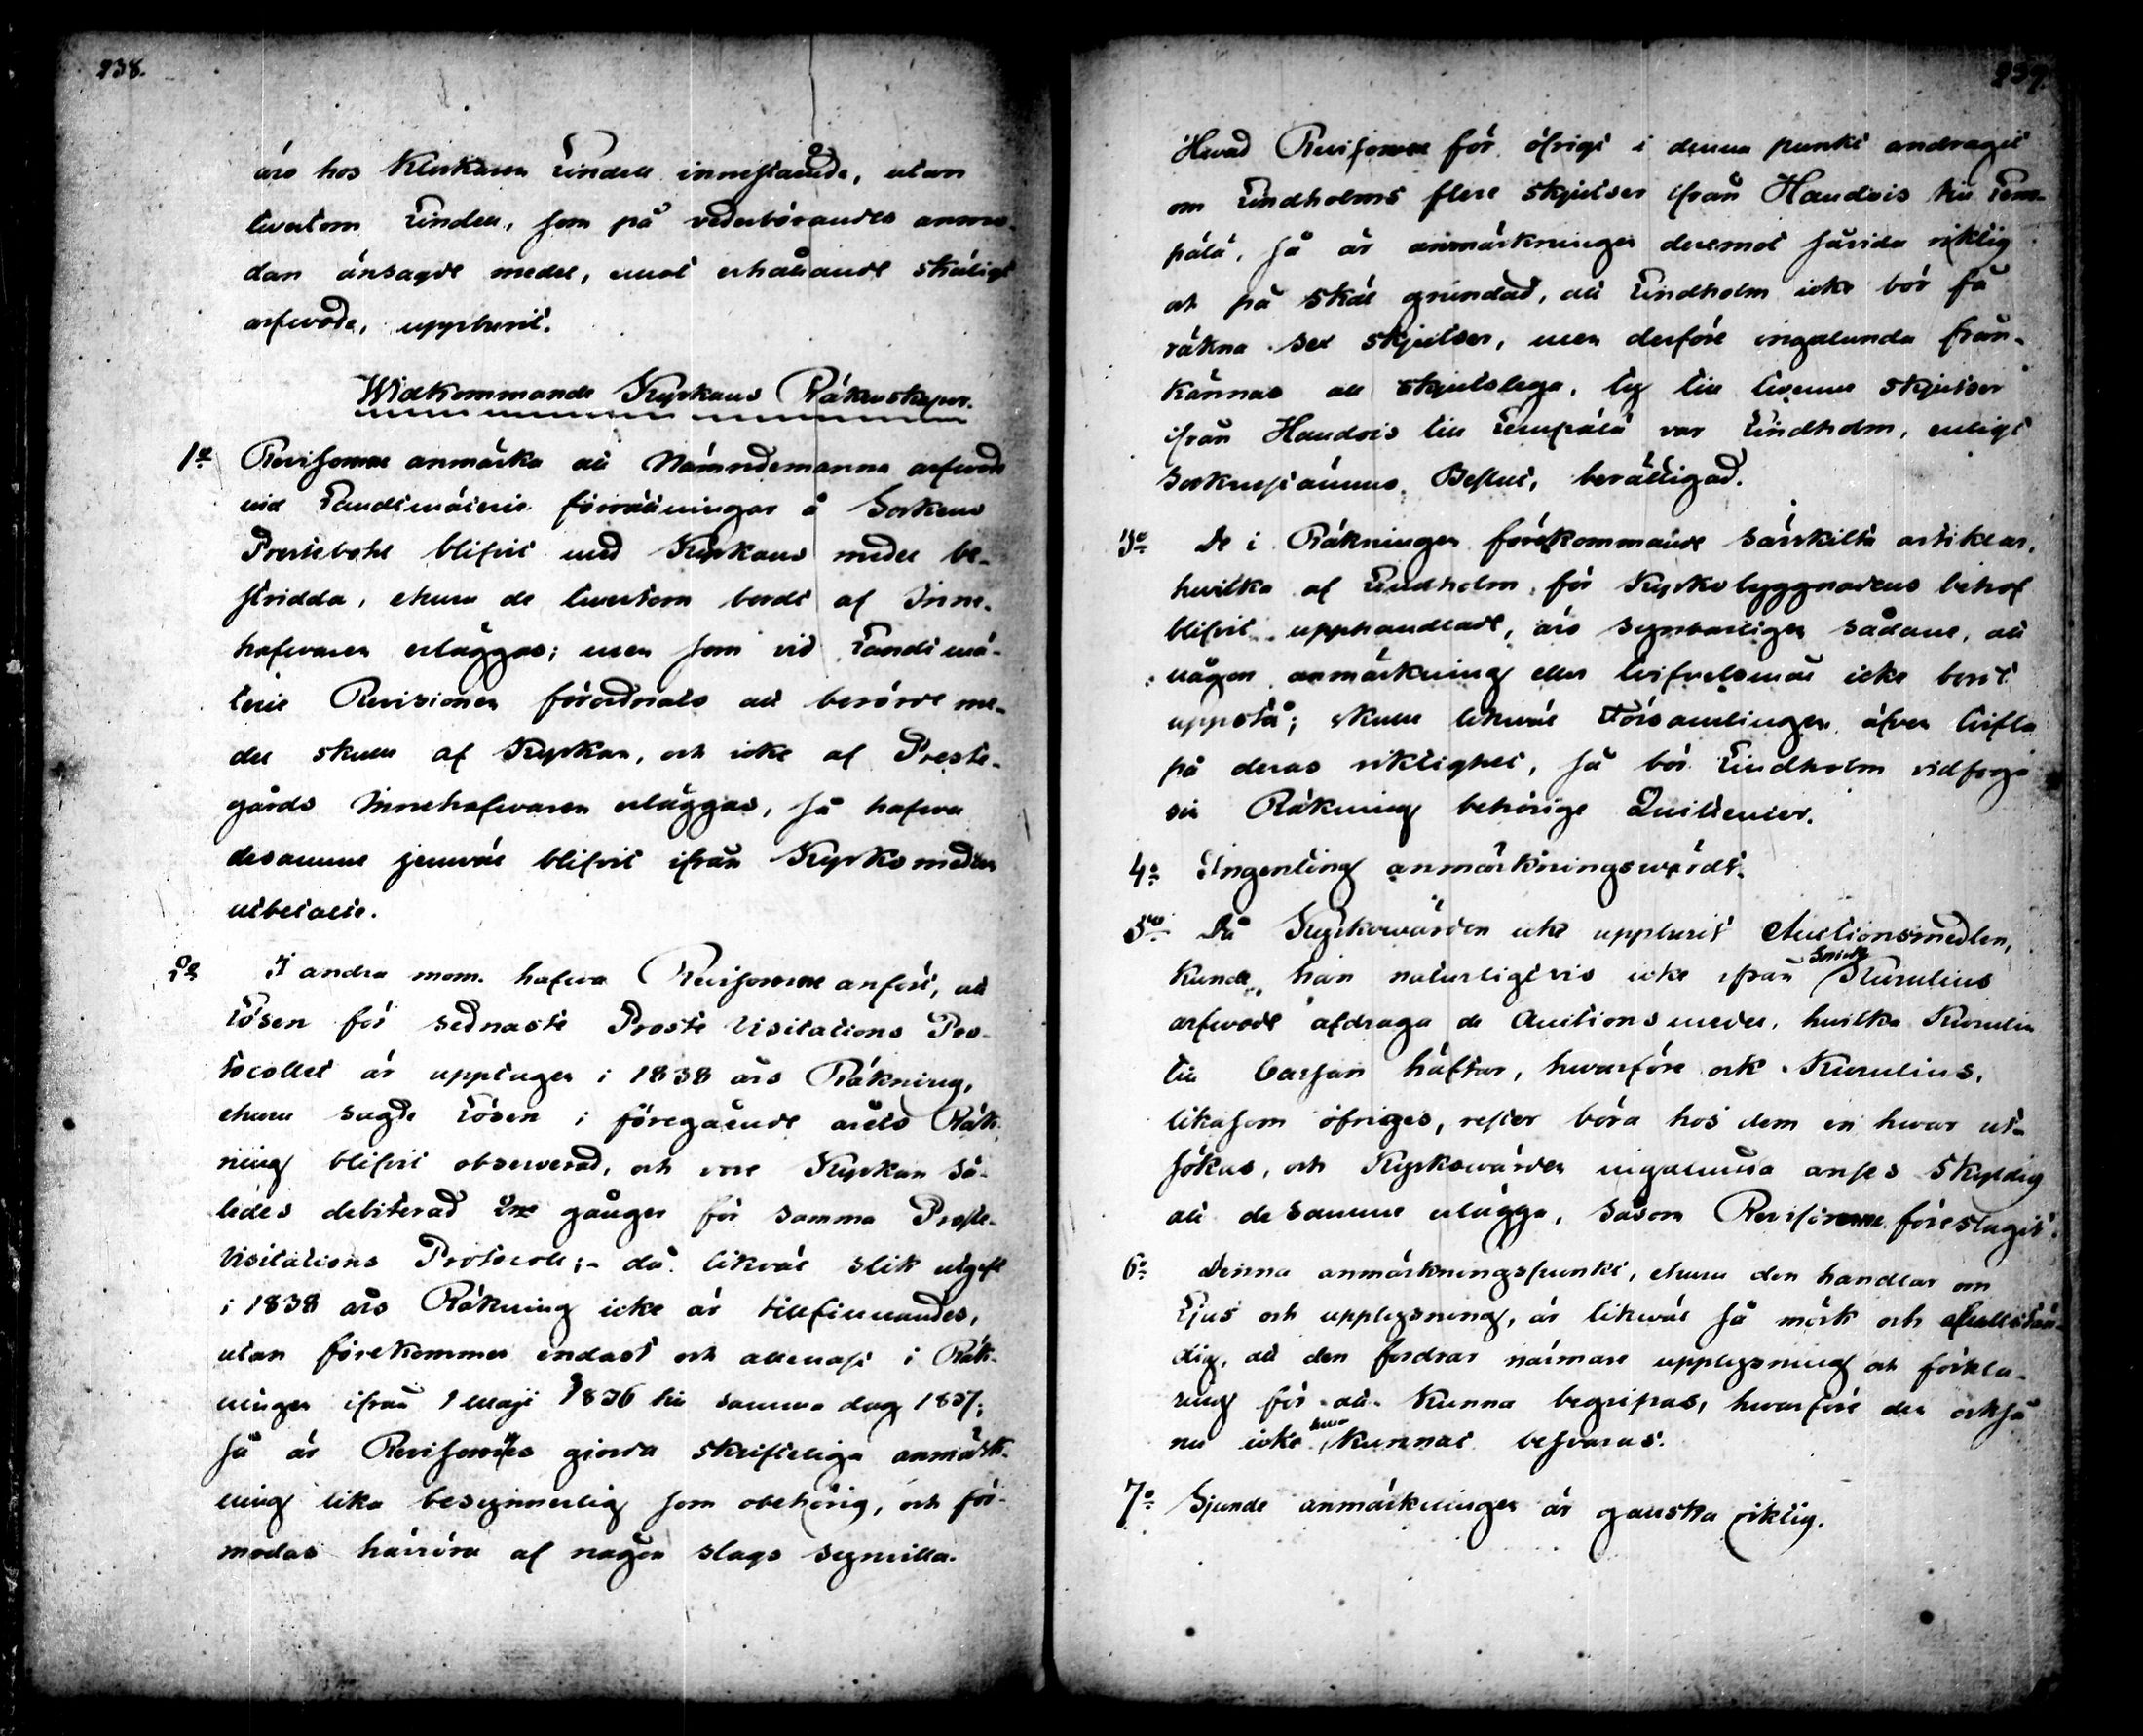 238.
äro hos Klockaren Lindell innestående, utan
tvertom Lindell, som på vederbörandes anmo-
dan änsagde medel, emot erhållande skäligt
arfwode, uppburit.
Widkommande Kyrkans Räkenskaper.
1o Revisorerne anmärka att Nämndemanna arfwode
vid Landtmäteri förrättningar å Sockens
Prestebohl blifvit med Kyrkans medel be-
stridda, ehuru de tvertom bordt af Inne-
hafwaren erläggas; men som vid Landtmä-
teri Revisionen förordnats att berörde me-
del skulle af Kyrkan, och icke af Preste-
gårds Innehafwaren erläggas, så hafwa
desamme jemväl blifvit ifrån Kyrko medlen
utbetalte.
2o I andra mom. hafwa Revisorerne anfört, att
Lösen för sednaste Proste Visitations Pro-
tocollet är upptagen i 1838 års Räkning,
ehuru sagde Lösen i föregående årets Räk-
ning blifvit observerad, och vore Kyrkan så-
ledes debiterad 2ne gånger för samma Proste-
Visitations Protocoll;- då likväl slik utgift
i 1838 års Räkning icke är tillfinnandes,
utan förekommer endast och allenast i Räk-
ningen ifrån 1 Maji 1836 till samma dag 1837;
så är Revisorernes gjorda skrifteliga anmärk-
ning lika besynnerlig som obehörig, och för-
modas härröra af någon slags synvilla.
239.
Hvad Revisorerne för öfrigt i denna punkt andragit
om Lindholms flere skjutser ifrån Haudois till Lem-
pälä, så är anmärkningen deremot såvida riktig
och på skäl grundad, att Lindholm icke bör få
räkna sex skjutser, men derföre ingalunda från-
kännas all skjutslega, ty till tvenne skjutser
ifrån Haudois till Lempälä var Lindholm, enligt
Sockenstämmo Beslut, berättigad.
3o De i Räkningen förekommande särskilta artiklar,
hvilka af Lindholm för Kyrko byggnadens behof
blifvit upphandlade, äro synbarligen sådane, att
någon anmärkning eller tvifvelsmål icke bordt
uppstå; skulle likväl Församlingen äfven tvifla
på deras riktighet, så bör Lindholm vidfoga
sin Räkning behörige Quittenser.
4o Ingenting anmärkningswärdt.
5to Då Kyrkowärden icke uppburit Auctionsmedlen,
kunde han naturligtvis icke ifrån Smide Kurulius
arfwode afdraga de Auctionsmedel, hvilka Kurulius
till Cassan häftar, hvarföre ock Kurulius,
likasom öfriges, rester böra hos dem en hvar ut-
sökas, och Kyrkowärden ingalunda anses skyldig
att desamme erlägga, såsom Revisorerne föreslagit.
6o Denna anmärkningspunkt, ehuru den handlar om
Ljus och upplysning, är likväl så mörk och
dig, att den fordrar närmare upplysning och förkla-
ring för att kunna begripas, hvarföre den också
nu icke kunnat besvaras.
7o Sjunde anmärkningen är ganska riktig.